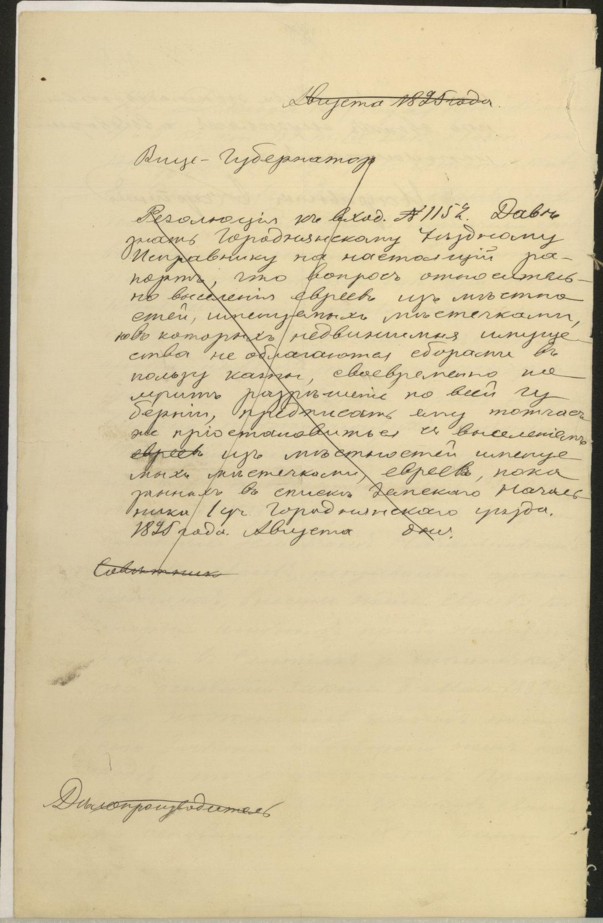 Августа 1895 года.
Вице-Губернатор
Резолюція къ вход. № 1152. Дать
знать Городнянскому Уѣздному
Исправнику на настоящій ра-
портъ, что вопросъ относитель-
но выселенія евреевъ изъ мѣстно
стей, именуемыхъ мѣстечками,
но въ которыхъ недвижимыя имуще
ства не облагаются сборами въ
пользу казны, своевременно по
лучитъ разрѣшеніе по всей гу
берніи, предписать ему тотчасъ
же пріостановиться съ выселеніемъ
евреевъ изъ мѣстностей именуе
мыхъ мѣстечками, евреевъ, пока
занныхъ въ спискѣ Земскаго Началь
ника 1 уч. Городнянскаго уѣзда.
1895 года Августа дня.
Совѣтникъ
Дѣлопроизводитель